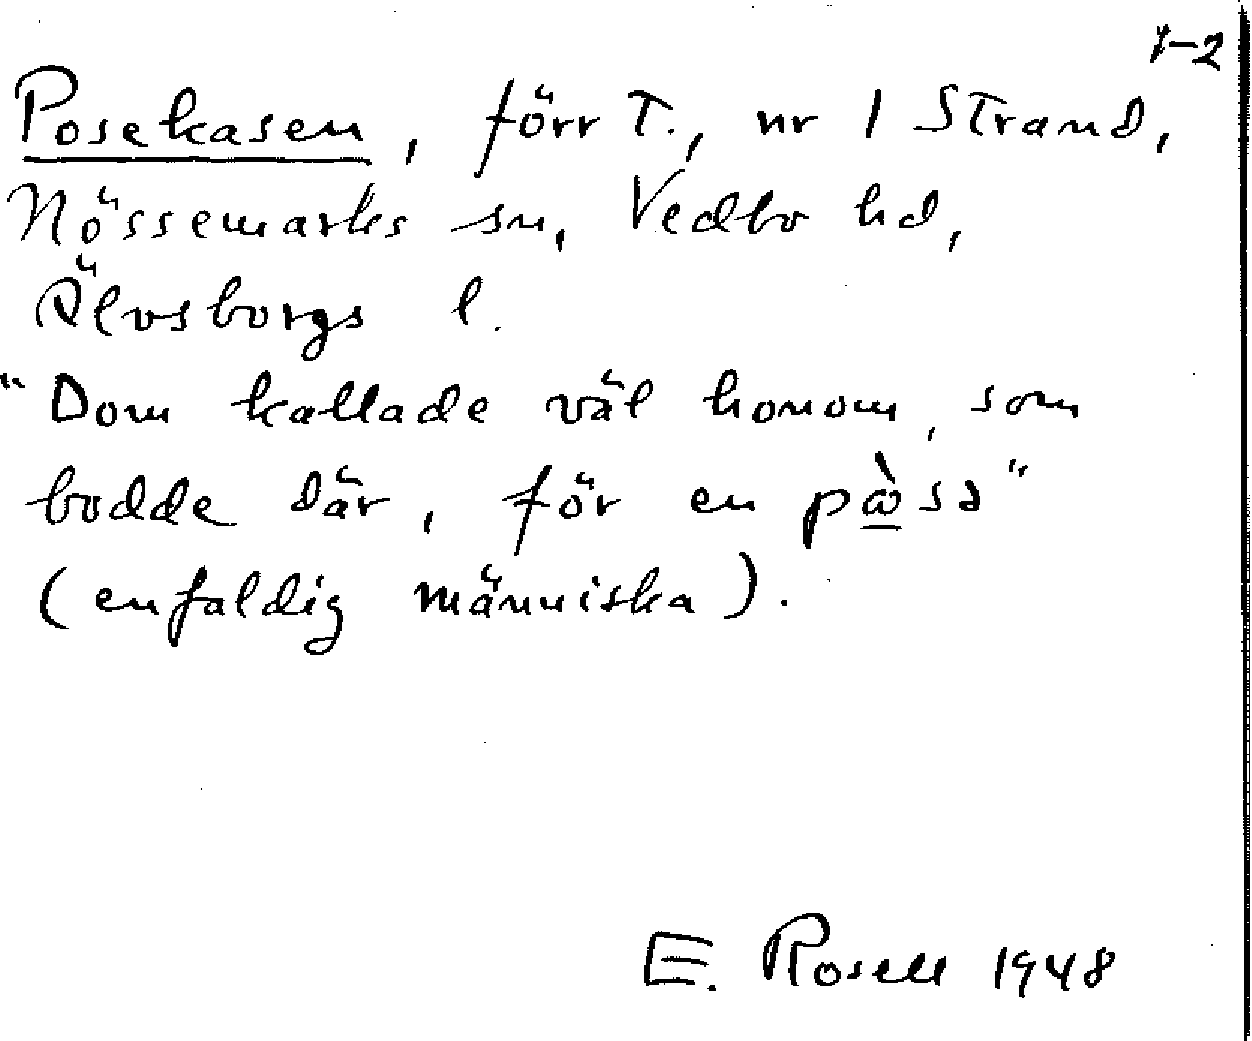 1-2
Posekasen, förr T., nr 1 Strand,
Nössemarks sn, Vedbo hd,
Älvsborgs l.
"Dom kallade väl honom, som
bodde där, för en pὼ̲sə"
(enfaldig människa).
E. Rosell 1948